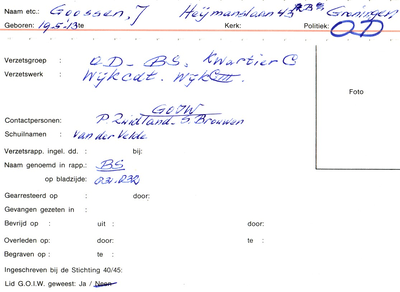 Naam etc.: Goossen, J Heymanslaan 43 Groningen
Geboren: 19-5-'13 Kerk: Politiek: OD
Verzetsgroep : O.D- BS. Kwartier C
Verzetswerk : Wijkcdt. Wijk III.
Foto
GOIW
Contactpersonen: P Zuidland - S. Brouwer
Schuilnamen : Van der Velde
Verzetsrapp. ingel. dd. : bij:
Naam genoemd in rapp.: BS
op bladzijde: 031.032
Gearresteerd op : door:
Gevangen gezeten in :
Bevrijd op : uit : door:
Overleden op : door: te :
Begraven op : te :
Ingeschreven bij de Stichting 40/45:
Lid G.O.I.W. geweest: Ja / Neen